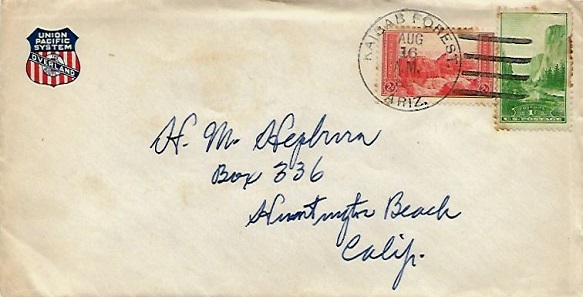 UNION
PACIFIC
SYSTEM
OVERLAND
KAIBAB FOREST.
AUG
16
A.M.
ARIZ.
2
2
1
U.S. POSTAGE
H. M. Hepburn
Box 336
Huntington Beach
Calif.